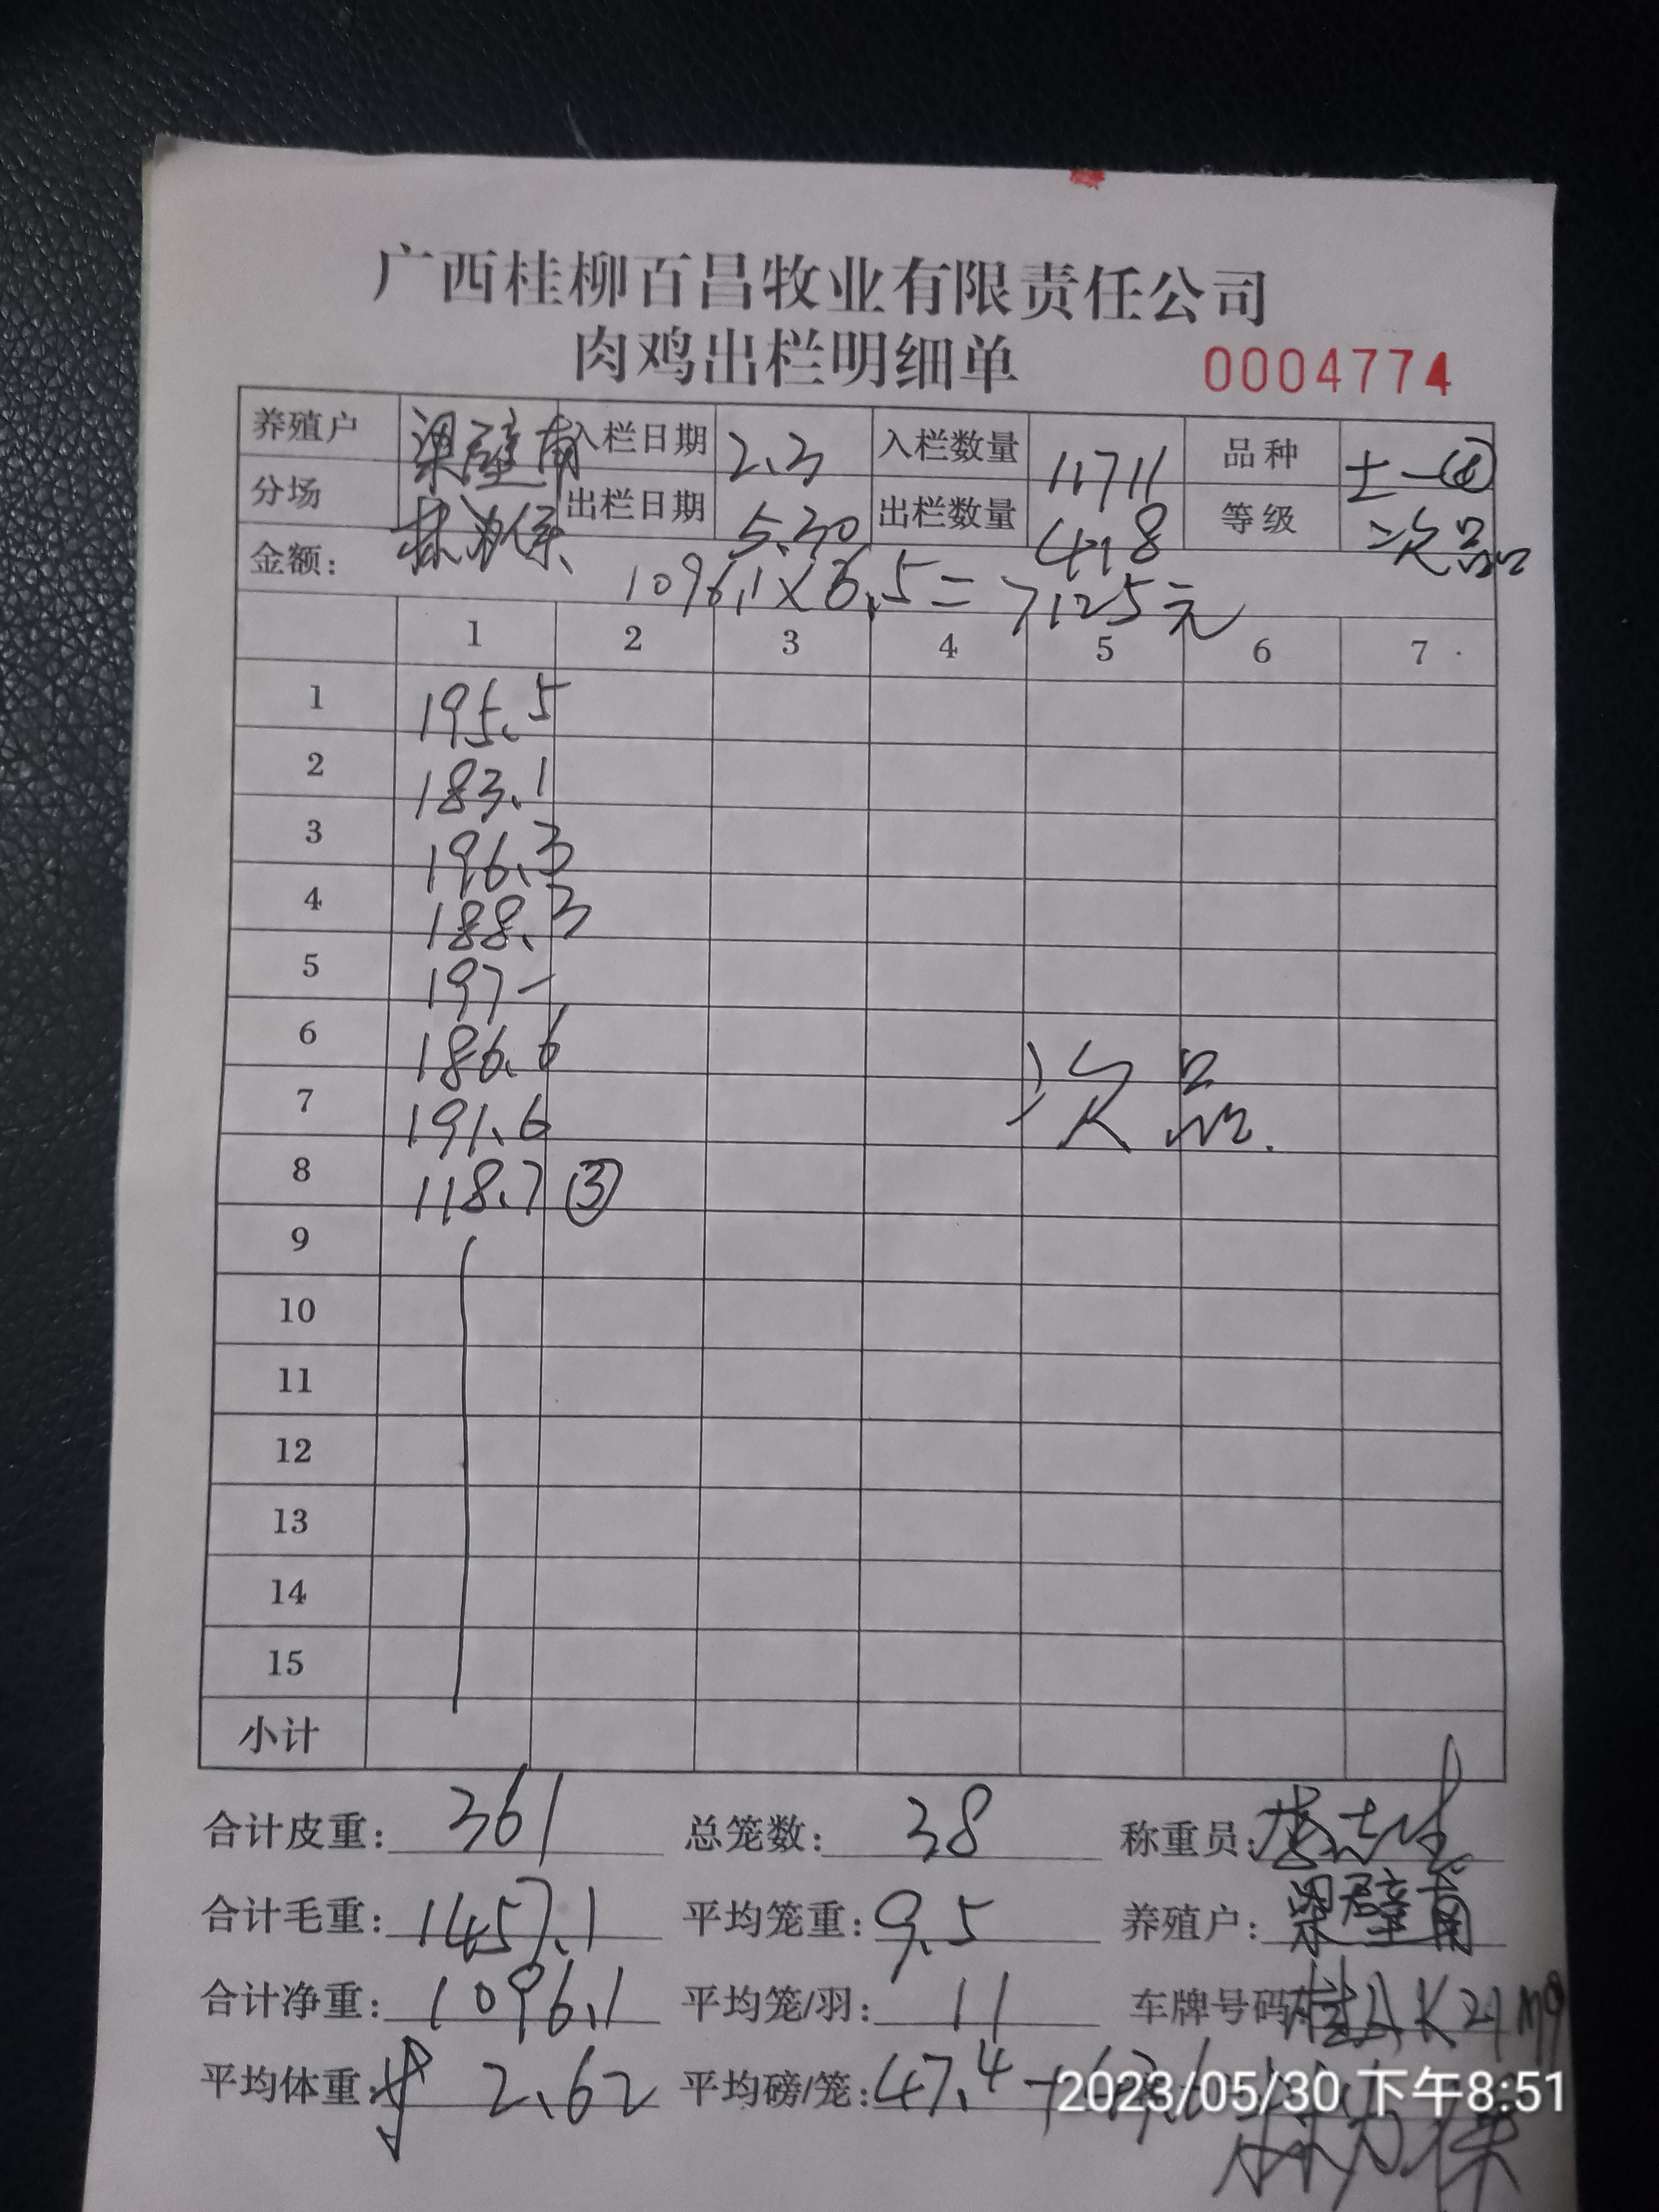 广西桂柳百昌牧业有限责任公司
肉鸡出栏明细单 0004774
养殖户 梁壁南 入栏日期 2.3 入栏数量 11711 品种 土一
分场 林为保 出栏日期 5.30 出栏数量 418 等级 次品
金额: 1096.1×6.5=7125元
1 2 3 4 5 6 7
1 195.5
2 183.1
3 196.3
4 188.3
5 197-
6 186.6
7 191.6
次品.
8 118.7 ③
9
10
11
12
13
14
15
小计
合计皮重: 361 总笼数: 38 称重员:
合计毛重: 1457.1 平均笼重: 9.5 养殖户: 梁壁南
合计净重: 1096.1 平均笼/羽: 11 车牌号码:
平均体重: 2.62 平均磅/笼: 47.4
2023/05/30 下午8:51
林为保